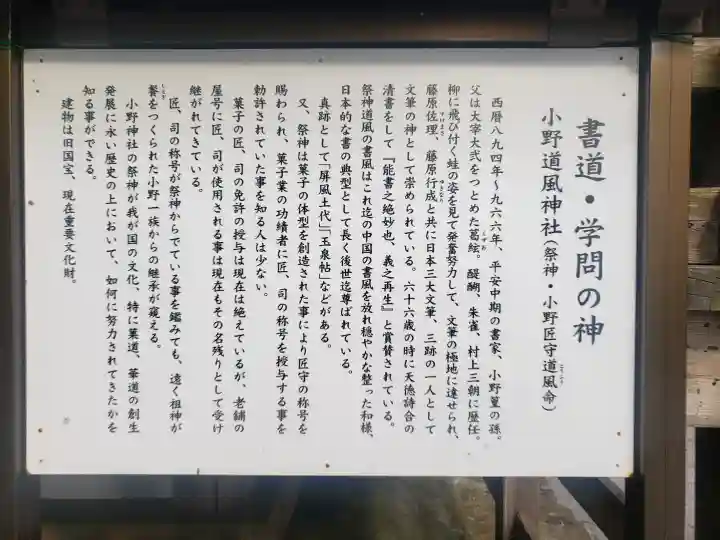 書道・学問の神
小野道風神社(祭神・小野匠守道風命)
西暦八九四年~九六六年、平安中期の書家、小野篁の孫。
父は大宰大弐をつとめた葛絃。醍醐、朱雀、村上三朝に歴任。
柳に飛び付く蛙の姿を見て発奮努力して、文筆の極地に達せられ、
藤原佐理、藤原行成と共に日本三大文筆、三跡の一人として
文筆の神として崇められている。六十六歳の時に天徳詩合の
清書をして『能書之絶妙也、羲之再生』と賞賛されている。
祭神道風の書風はこれ迄の中国の書風を放れ穏やかな整った和様、
日本的な書の典型として長く後世迄尊ばれている。
真跡として「屏風土代」「玉泉帖」などがある。
又、祭神は菓子の体型を創造された事により匠守の称号を
賜わられ、菓子業の功績者に匠、司の称号を授与する事を
勅許されていた事を知る人は少ない。
菓子の匠、司の免許の授与は現在は絶えているが、老舗の
屋号に匠、司が使用される事は現在もその名残りとして受け
継がれてきている。
匠、司の称号が祭神からでている事を鑑みても、遠く祖神が
餐をつくられた小野一族からの継承が窺える。
小野神社の祭神が我が国の文化、特に菓道、華道の創生
発展に永い歴史の上において、如何に努力されてきたかを
知る事ができる。
建物は旧国宝、現在重要文化財。